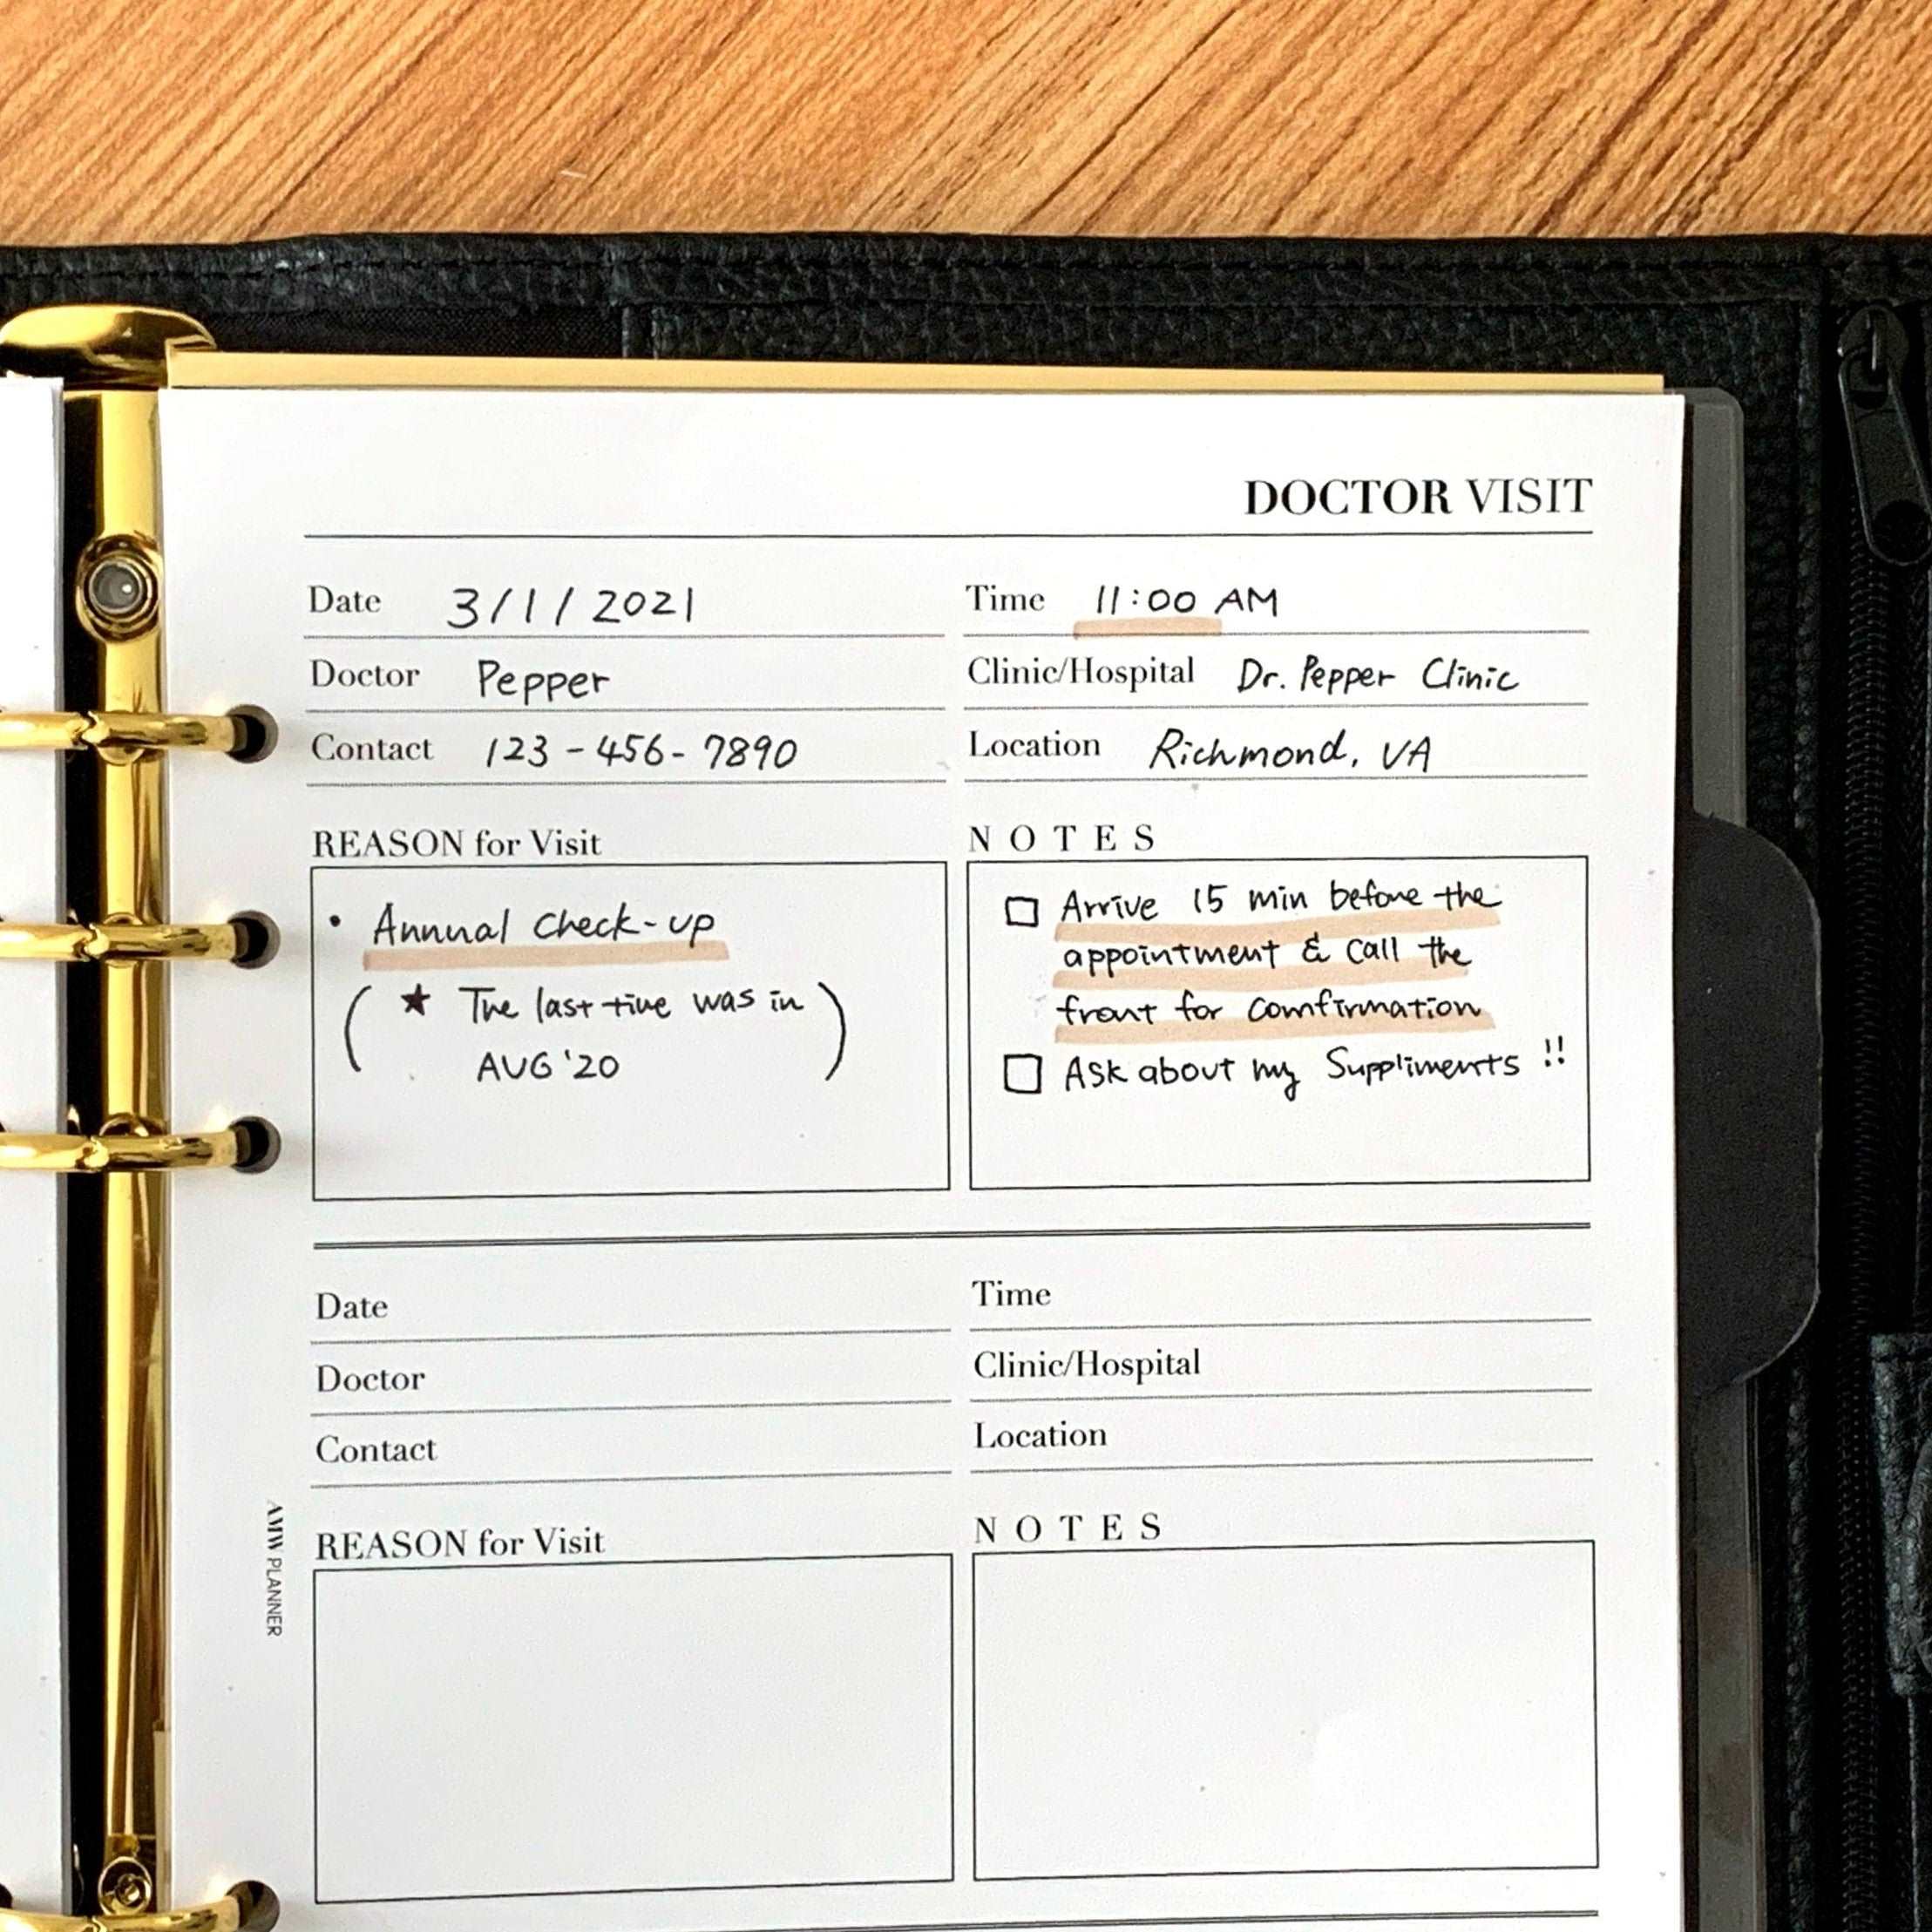 DOCTOR VISIT
Date 3/1/2021 Time 11:00 AM
Doctor Pepper Clinic/Hospital Dr. Pepper Clinic
Contact 123-456-7890 Location Richmond, VA
REASON for Visit
• Annual check-up
(★ The last time was in
AUG '20)
NOTES
☐ Arrive 15 min before the
appointment & call the
front for comfirmation
☐ Ask about my Suppliments !!
Date Time
Doctor Clinic/Hospital
Contact Location
REASON for Visit
NOTES
AMW PLANNER